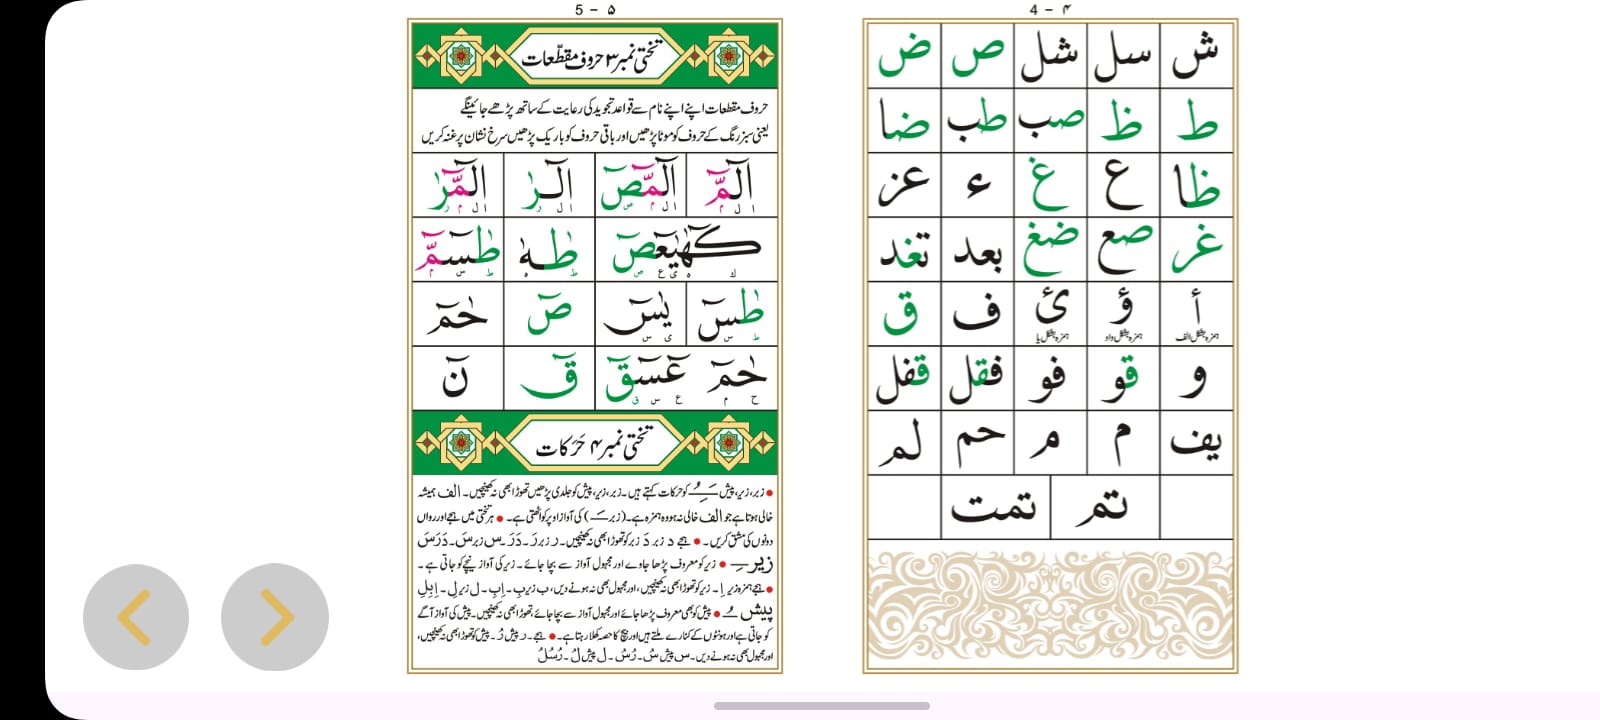 4 - ۴
ش سل شل ص ض
ط ظ صب طب ضا
ظا ع غ ء عز
غر صع ضغ بعد تغد
أ ؤ ئ ف ق
ہمزہ بشکل الف ہمزہ بشکل واو ہمزہ بشکل یا
و قو فو فقل قفل
یف م م حم لم
تم تمت
5 - ۵
تختی نمبر ۳ حروف مقطّعات
حروف مقطعات اپنے اپنے نام سے قواعد تجوید کی رعایت کے ساتھ پڑھے جائینگے
یعنی سبز رنگ کے حروف کو موٹا پڑھیں اور باقی حروف کو باریک پڑھیں سرخ نشان پر غنہ کریں
الٓمّٓ الٓمّٓصٓ الٓرٰ الٓمّٓرٰ
ا ل م ا ل م ص ا ل ر ا ل م ر
كٓهٰيٰعٓصٓ طٰهٰ طٰسٓمّٓ
ك ه ی ع ص ط ه ط س م
طٰسٓ يٰسٓ صٓ حٰمٓ
ط س ی س
حٰمٓ عٓسٓقٓ قٓ نٓ
ح م ع س ق
تختی نمبر ۴ حَرَکات
• زبر، زیر، پیش ـَـِـُ کو حرکات کہتے ہیں۔ زبر، زیر، پیش کو جلدی پڑھیں تھوڑا بھی نہ کھینچیں۔ الف ہمیشہ
خالی ہوتا ہے جو الف خالی نہ ہو وہ ہمزہ ہے۔ (زبر ـَ) کی آواز اوپر کو اٹھتی ہے۔ • ہر تختی میں ہجے اور رواں
دونوں کی مشق کریں۔ • ہجے د زبر دَ زبر کو تھوڑا بھی نہ کھینچیں۔ ر زبر رَ۔ دَرَ۔ س زبر سَ۔ دَرَسَ
زیر ـِ • زیر کو معروف پڑھا جاوے اور مجہول آواز سے بچا جائے۔ زیر کی آواز نیچے کو جاتی ہے۔
• ہجے ہمزہ زیر اِ۔ زیر کو تھوڑا بھی نہ کھینچیں، اور مجہول بھی نہ ہونے دیں، ب زیر بِ۔ اِبِ۔ ل زیر لِ۔ اِبِلِ
پیش ـُ • پیش کو بھی معروف پڑھا جائے اور مجہول آواز سے بچا جائے، تھوڑا بھی نہ کھینچیں۔ پیش کی آواز آگے
کو جاتی ہے اور ہونٹوں کے کنارے ملتے ہیں اور بیچ کا حصہ کھلا رہتا ہے۔ • ہجے۔ ر پیش رُ۔ پیش کو تھوڑا بھی نہ کھینچیں،
اور مجہول بھی نہ ہونے دیں۔ س پیش سُ۔ رُسُ۔ ل پیش لُ۔ رُسُلُ